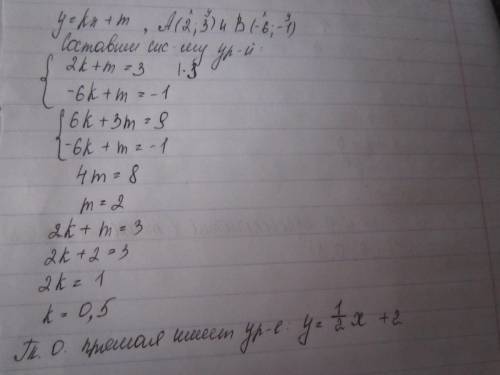 y = kx + m, A(2; 3) и B(-6; -1)
x y x y
Составим сис-му ур-й:
{ 2k + m = 3 |·3
-6k + m = -1
{ 6k + 3m = 9
-6k + m = -1
4m = 8
m = 2
2k + m = 3
2k + 2 = 3
2k = 1
k = 0,5
Т.о. прямая имеет ур-е: y = 1/2 x + 2